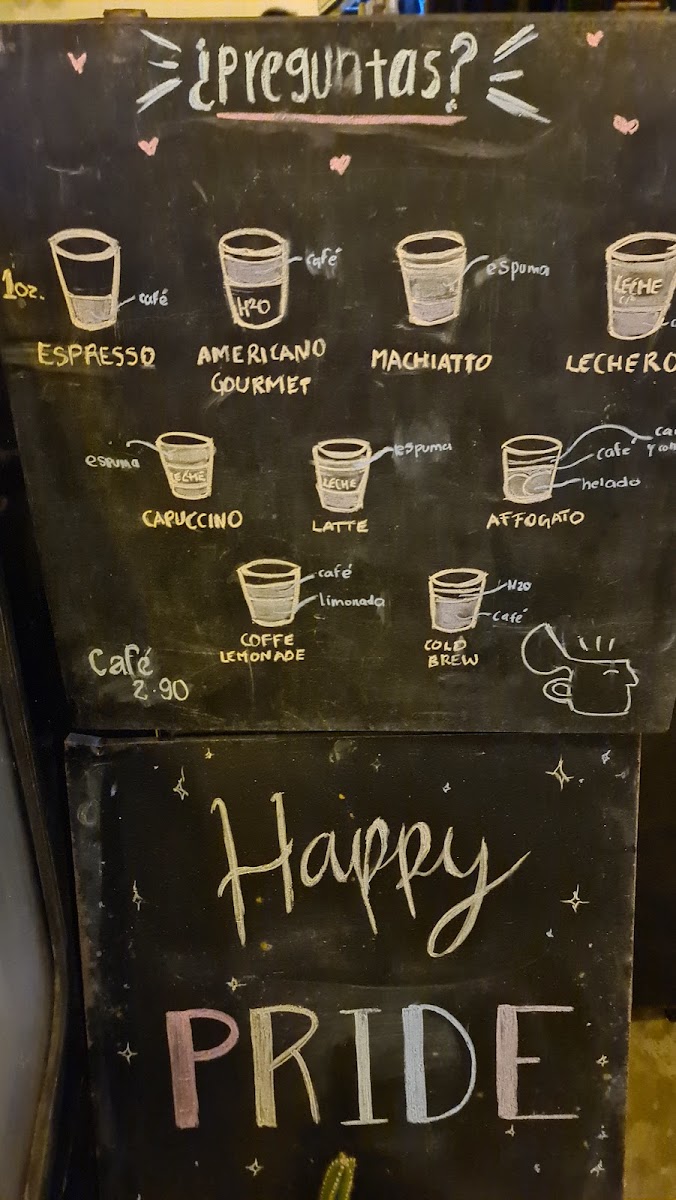 ¿Preguntas?
1oz.
café
ESPRESSO
café
H2O
AMERICANO
GOURMET
espuma
MACHIATTO
LECHE
LECHERO
espuma
LECHE
CAPUCCINO
espuma
LECHE
LATTE
café
helado
AFFOGATO
café
limonada
COFFE
LEMONADE
H20
café
COLD
BREW
Café
2.90
Happy
PRIDE